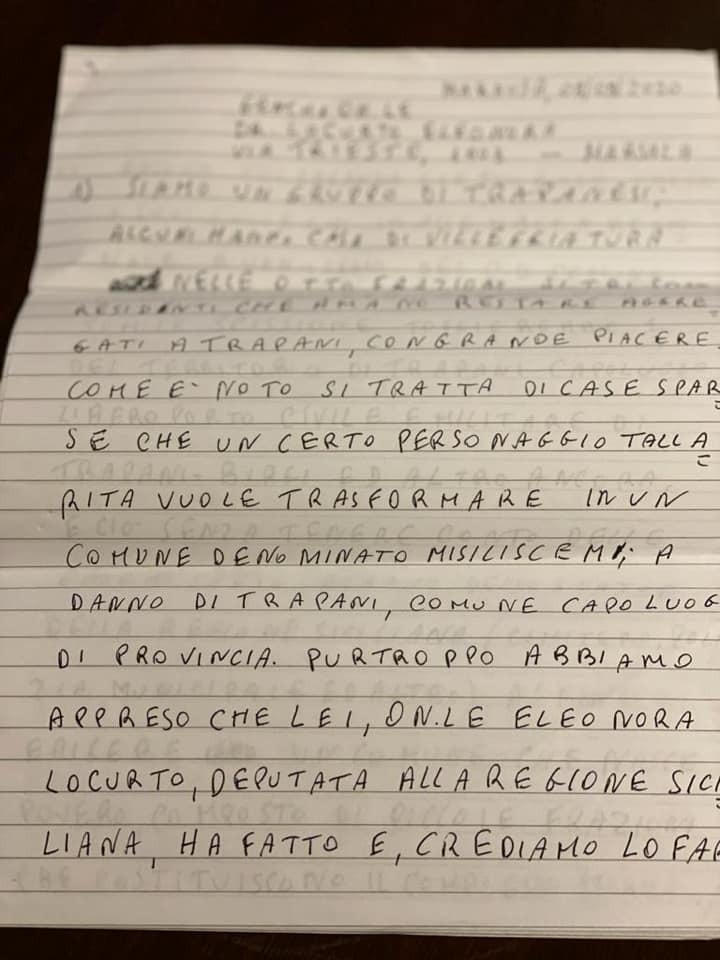 DR. LOCURTO ELEONORA
VIA TRIESTE, — MARSALA
1) SIAMO UN GRUPPO DI TRAPANESI;
ALCUNI HANNO CASA DI VILLEGGIATURA
NELLE OTTO FRAZIONI
RESIDENTI CHE AMANO RESTARE AGGRE
GATI A TRAPANI, CON GRANDE PIACERE.
COME E' NOTO SI TRATTA DI CASE SPAR
SE CHE UN CERTO PERSONAGGIO TALLA
RITA VUOLE TRASFORMARE IN UN
COMUNE DENOMINATO MISILISCEMI; A
DANNO DI TRAPANI, COMUNE CAPOLUOG
DI PROVINCIA. PURTROPPO ABBIAMO
APPRESO CHE LEI, ON.LE ELEONORA
LOCURTO, DEPUTATA ALLA REGIONE SICI
LIANA, HA FATTO E, CREDIAMO LO FAR